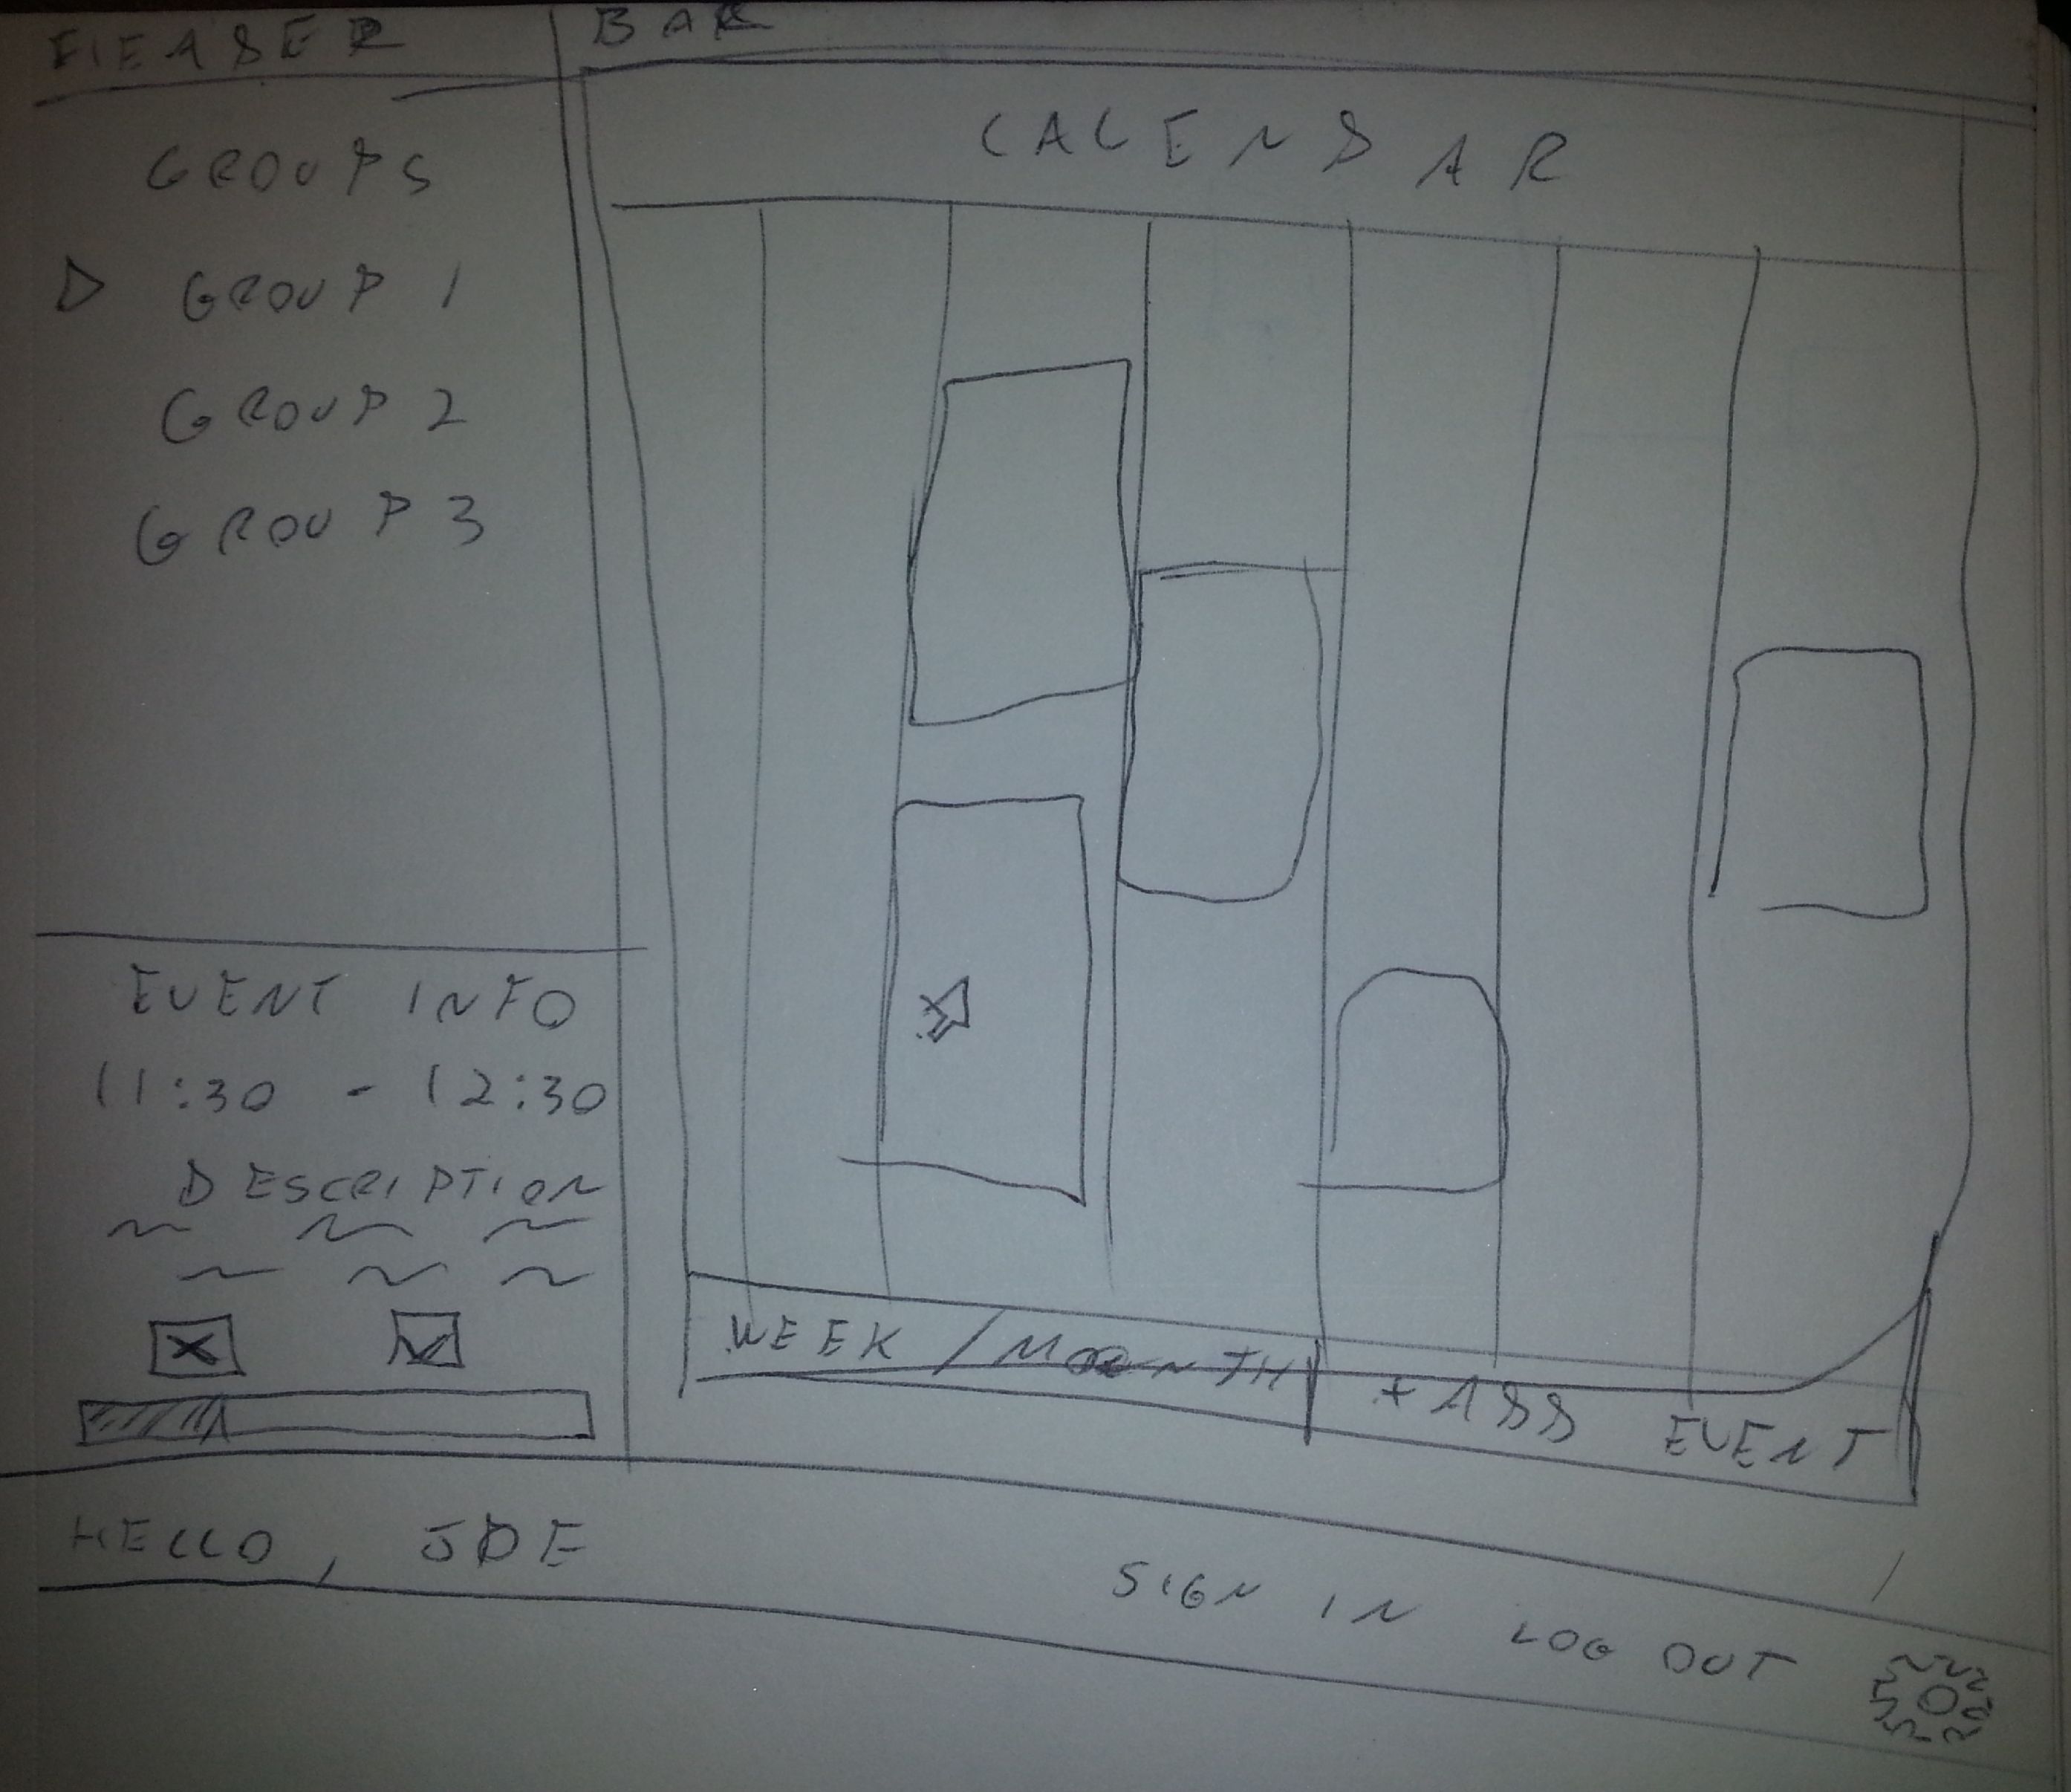 HEADER BAR
CALENDAR
GROUPS
GROUP 1
GROUP 2
GROUP 3
EVENT INFO
11:30 - 12:30
DESCRIPTION
WEEK / MONTH
+ ADD EVENT
HELLO, JOE
SIGN IN LOG OUT